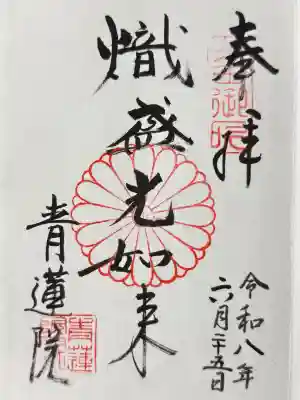 奉拝
令和八年
六月二十五日
熾盛光如来
青蓮院
青蓮